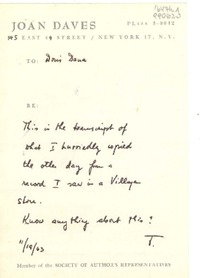 JOAN DAVES
145 EAST 49 STREET / NEW YORK 17, N.Y.
TO: Doris Dana
RE:
This is the transcript of
what I hurriedly copied
the other day from a
record I saw in a Village
store.
Know anything about this?
J.
11/19/63
Member of the SOCIETY OF AUTHORS REPRESENTATIVES